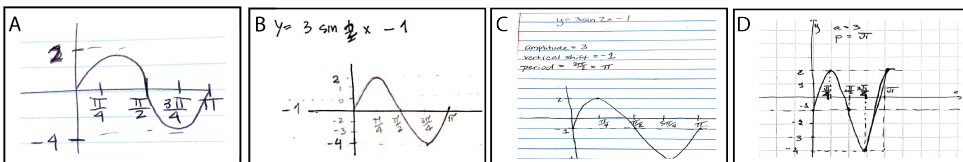 A
2
π/4 π/2 3π/4 π
-4
B
y = 3 sin 2 x - 1
2
1
-1
-2
-3
-4
π/4 π/2 3π/4 π
C
y = 3 sin 2x - 1
amplitude = 3
vertical shift = -1
period = 2π/2 = π
2
-1
π/4 π/2 3π/4 π
D
y
a = 3
p = π
2
1
-1
-2
-3
-4
π/4 π/2 3π/4 π